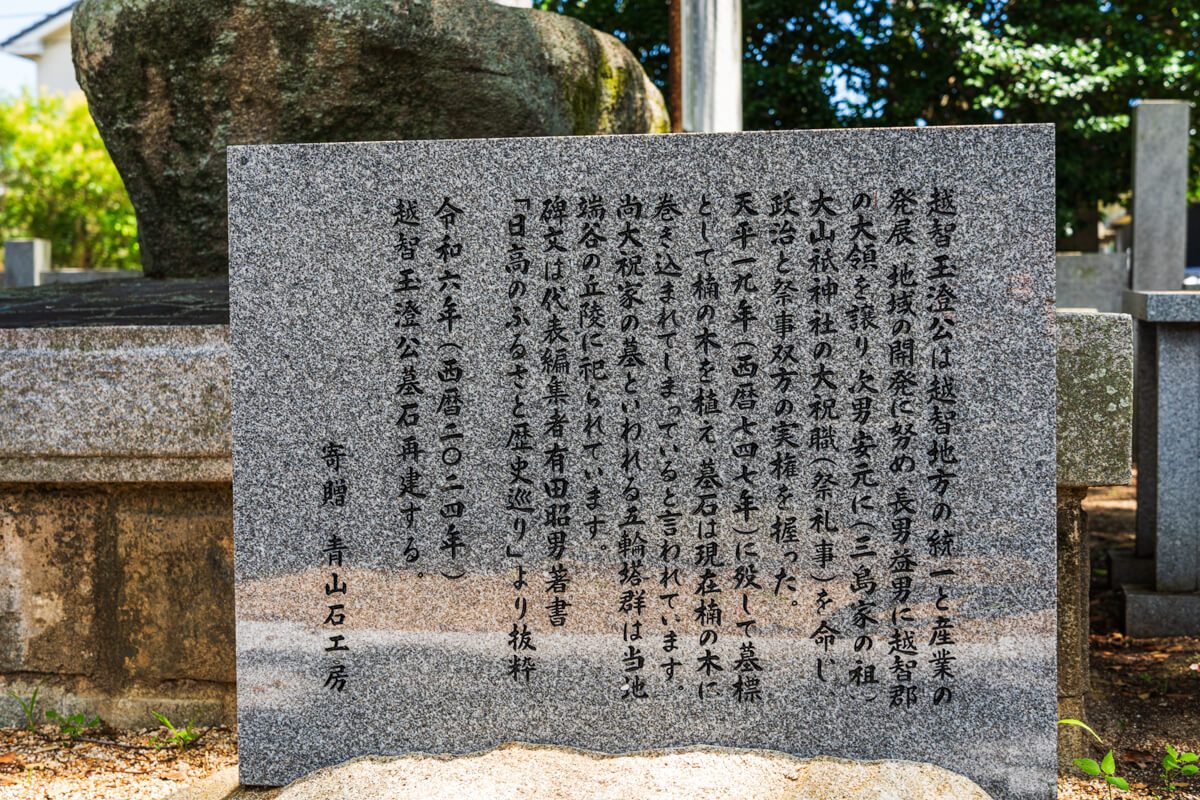 越智玉澄公は越智地方の統一と産業の
発展、地域の開発に努め、長男益男に越智郡
の大領を譲り次男安元に(三島家の祖)
大山祇神社の大祝職(祭礼事)を命じ
政治と祭事双方の実権を握った。
天平一九年(西暦七四七年)に歿して墓標
として楠の木を植え、墓石は現在楠の木に
巻き込まれてしまっていると言われています。
尚大祝家の墓といわれる五輪塔群は当地
端谷の丘陵に祀られています。
碑文は代表編集者有田昭男著書
「日高のふるさと歴史巡り」より抜粋
令和六年(西暦二〇二四年)
越智玉澄公墓石再建する。
寄贈 青山石工房